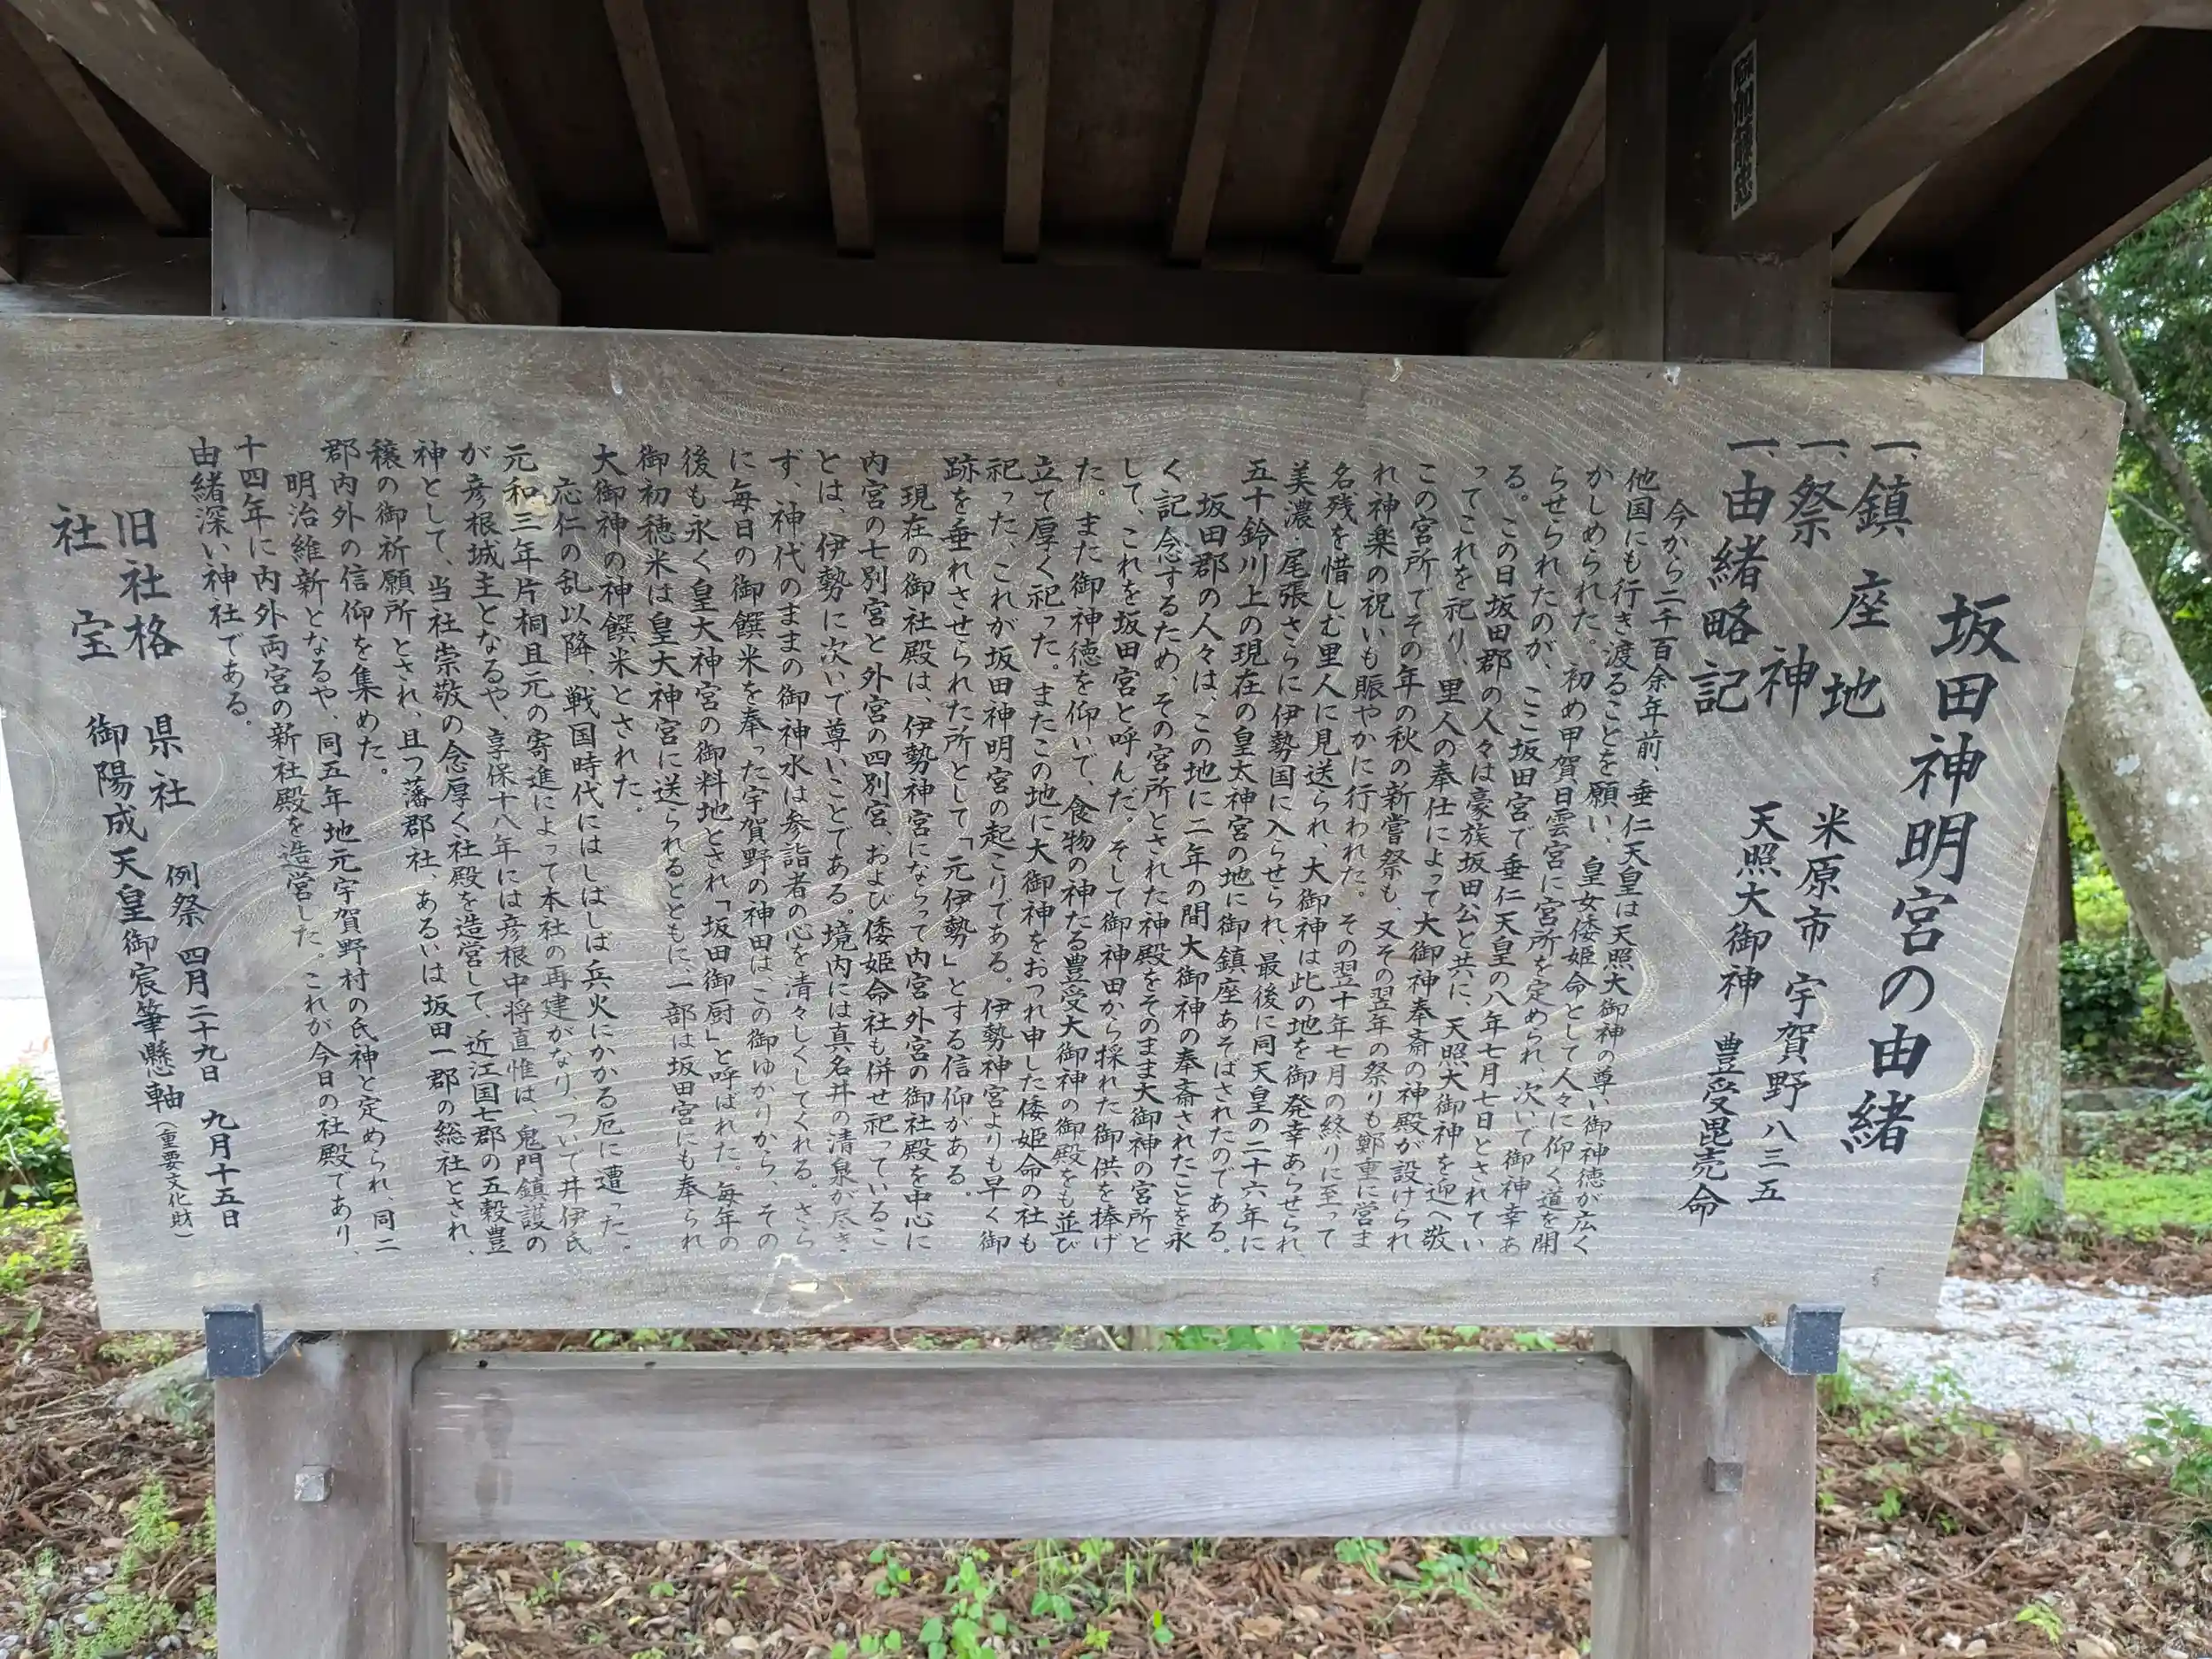 坂田神明宮の由緒
一、鎮座地 米原市 宇賀野八三五
一、祭神 天照大御神 豊受毘売命
一、由緒略記
今から二千百余年前、垂仁天皇は天照大御神の尊い御神徳が広く
他国にも行き渡ることを願い、皇女倭姫命として人々に仰く道を開
かしめられた。初め甲賀日雲宮に宮所を定められ、次いで御神幸あ
らせられたのが、ここ坂田宮で垂仁天皇の八年七月七日とされてい
る。この日坂田郡の人々は豪族坂田公と共に、天照大御神を迎へ敬
ってこれを祀り、里人の奉仕によって大御神奉斎の神殿が設けられ
この宮所でその年の秋の新嘗祭も、又その翌年の祭りも鄭重に営ま
れ神楽の祝いも賑やかに行われた。その翌十年七月の終りに至って
名残を惜しむ里人に見送られ、大御神は此の地を御発幸あらせられ、
美濃・尾張さらに伊勢国に入らせられ、最後に同天皇の二十六年に
五十鈴川上の現在の皇太神宮の地に御鎮座あそばされたのである。
坂田郡の人々は、この地に二年の間大御神の奉斎されたことを永
く記念するため、その宮所とされた神殿をそのまま大御神の宮所と
して、これを坂田宮と呼んだ。そして御神田から採れた御供を捧げ
た。また御神徳を仰いで、食物の神たる豊受大御神の御殿をも並び
立て厚く祀った。またこの地に大御神をおつれ申した倭姫命の社も
祀った、これが坂田神明宮の起こりである。伊勢神宮よりも早く御
跡を垂れさせられた所として「元伊勢」とする信仰がある。
現在の御社殿は、伊勢神宮にならって内宮外宮の御社殿を中心に
内宮の七別宮と外宮の四別宮、および倭姫命社も併せ祀っているこ
とは、伊勢に次いで尊いことである。境内には真名井の清泉が尽き
ず、神代のままの御神水は参詣者の心を清々しくしてくれる。さら
に毎日の御饌米を奉った宇賀野の神田は、この御ゆかりから、その
後も永く皇大神宮の御料地とされ「坂田御厨」と呼ばれた。毎年の
御初穂米は皇大神宮に送られるとともに、一部は坂田宮にも奉られ
大御神の神饌米とされた。
応仁の乱以降、戦国時代にはしばしば兵火にかかる厄に遭った。
元和三年片桐且元の寄進によって本社の再建がなり、ついで井伊氏
が彦根城主となるや、享保十八年には彦根中将直惟は、鬼門鎮護の
神として、当社崇敬の念厚く社殿を造営して、近江国七郡の五穀豊
穣の御祈願所とされ、且つ藩郡社、あるいは坂田一郡の総社とされ、
郡内外の信仰を集めた。
明治維新となるや、同五年地元宇賀野村の氏神と定められ、同二
十四年に内外両宮の新社殿を造営した。これが今日の社殿であり、
由緒深い神社である。
旧社格 県社 例祭 四月二十九日 九月十五日
社宝 御陽成天皇御宸筆懸軸（重要文化財）